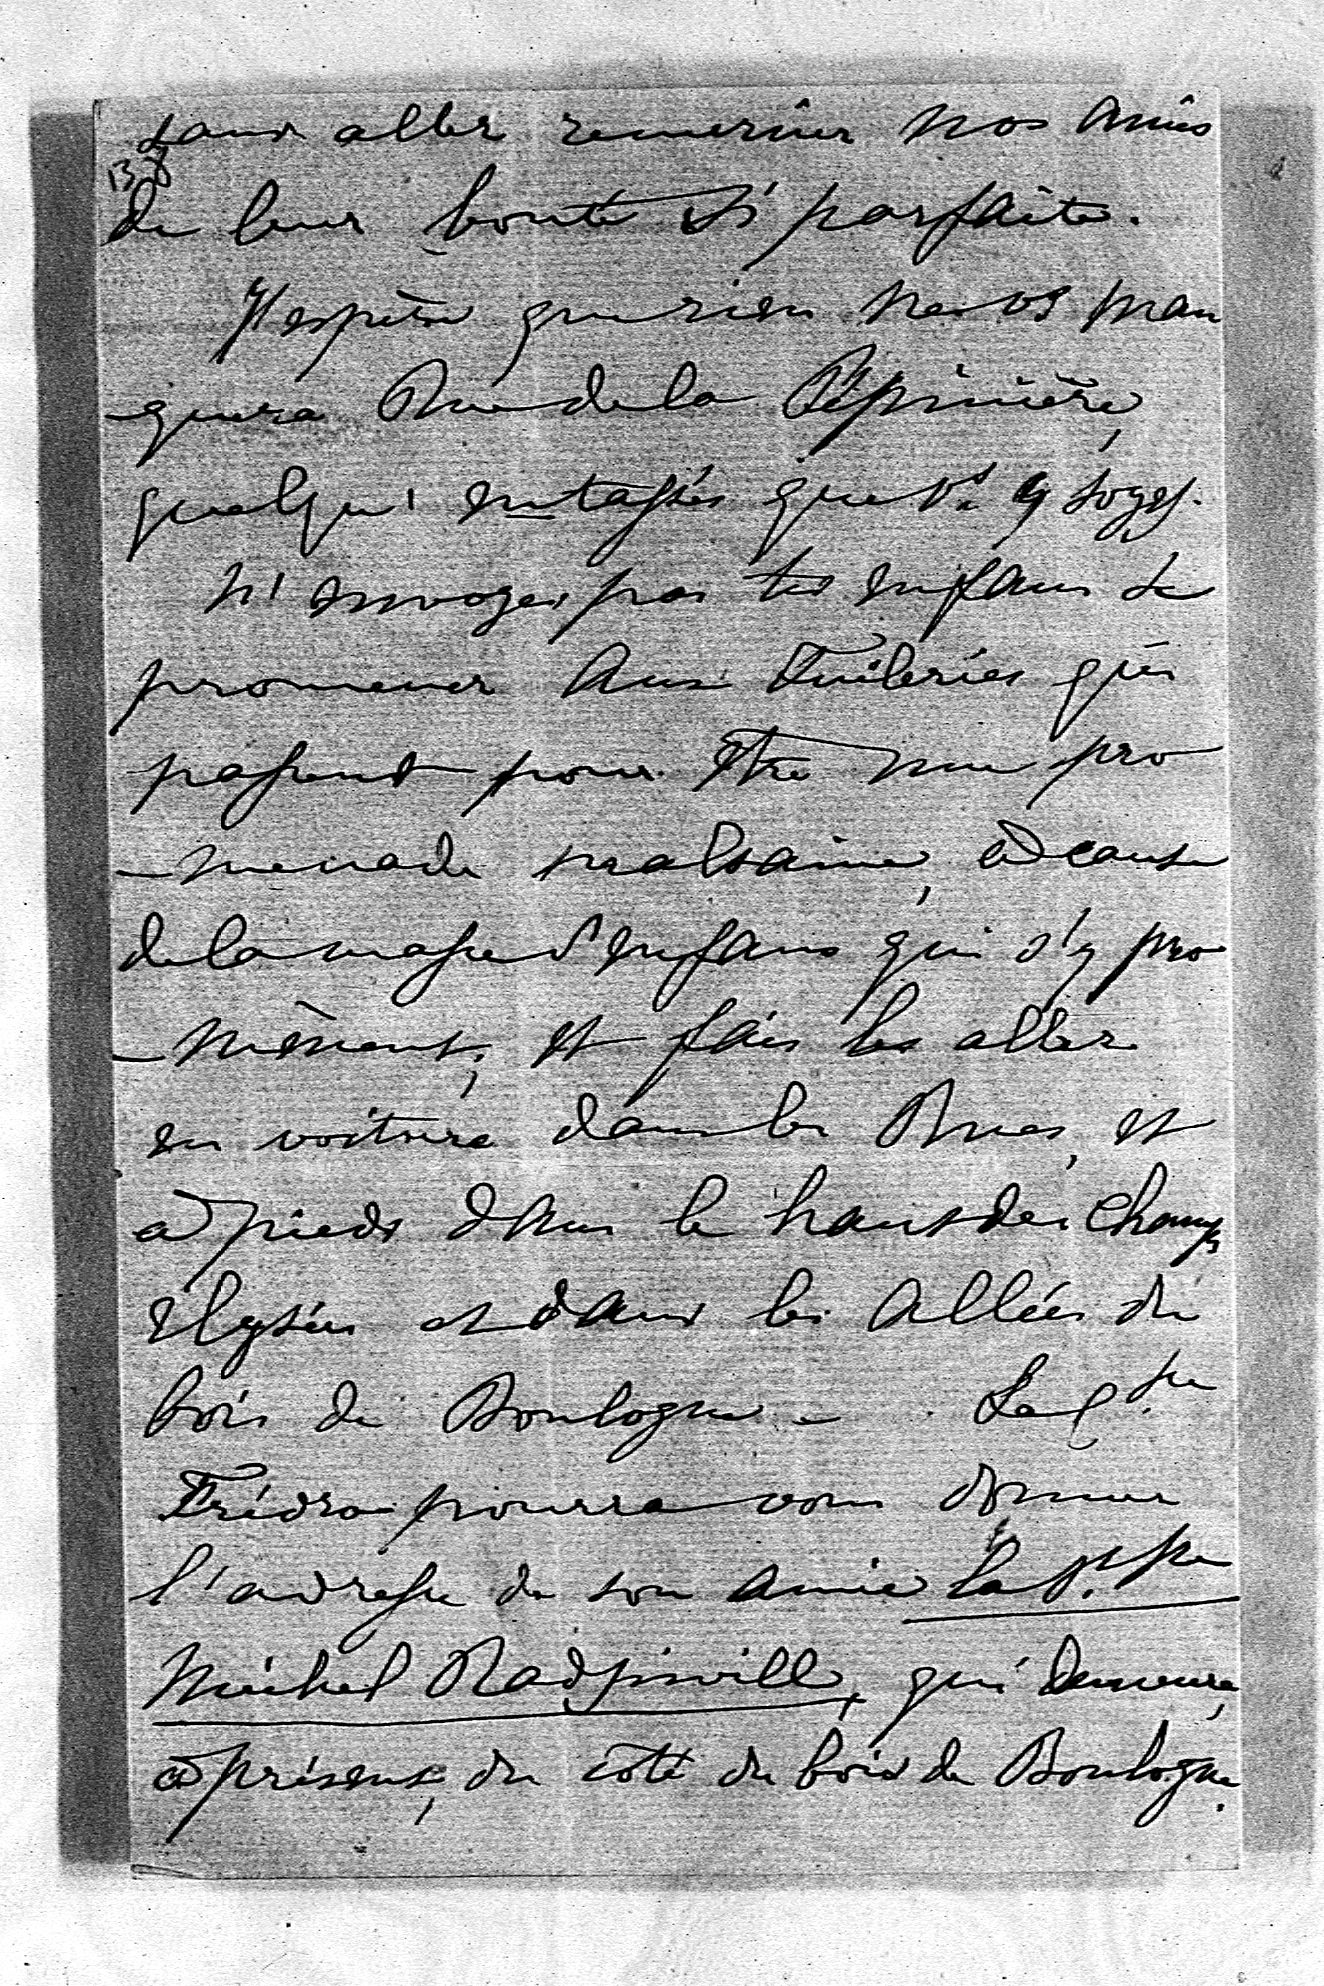 sans aller remercier nos amis
138
de leur bonté si parfaite.
J'espère que rien ne vs man
-quera Rue de la Pépinière,
quelqu'entassés que vs y soyez.
N'envoyes pas tes enfans se
promener aux Tuileries qui
passent pour être une pro
-menade malsaine, à cause
de la masse d'enfans qui s'y pro
-mènent; et fais les aller
en voiture dans les Rues, et
à pieds dans le haut des Champs
Elysées et dans les Allées du
bois de Boulogne - La Csse
Frédro pourra vous donner
l'adresse de son amie la Psse
Michel Radziwill, qui demeure,
à présent, du côté du bois de Boulogne.